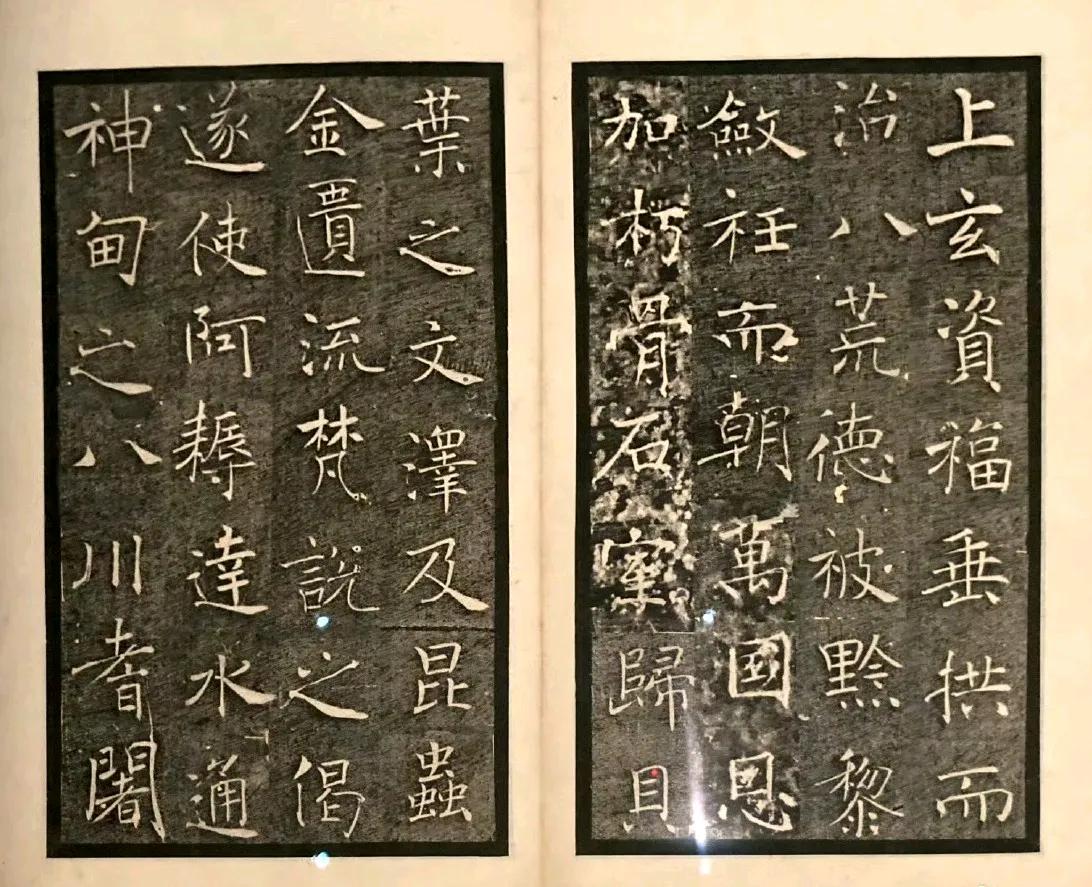 上玄資福垂拱而
治八荒德被黔黎
斂衽而朝萬國恩
加朽骨石室歸貝
葉之文澤及昆蟲
金匱流梵說之偈
遂使阿耨達水通
神甸之八川耆闍